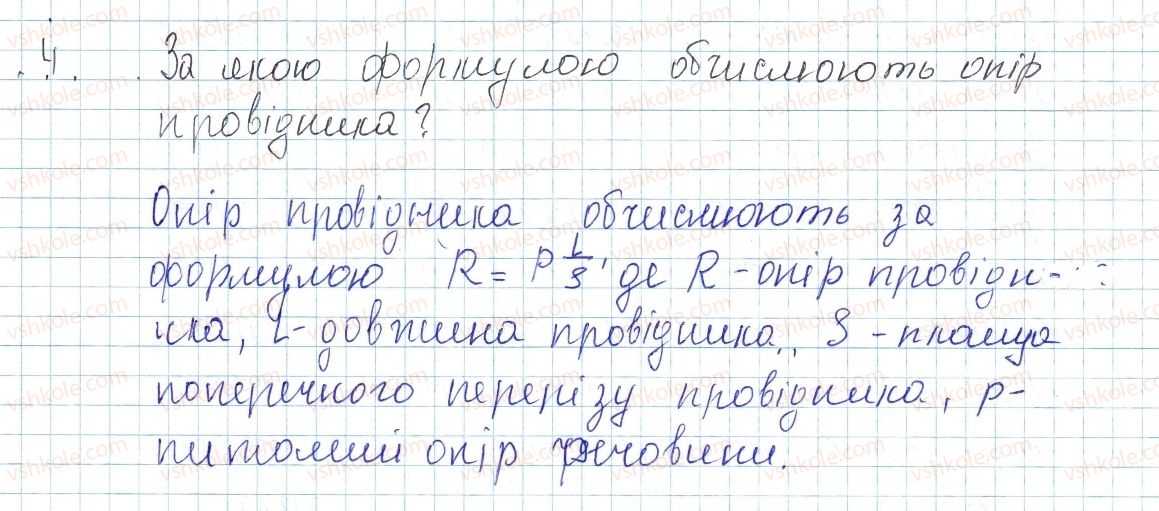 4. За якою формулою обчислюють опір
провідника?
Опір провідника обчислюють за
формулою R = ρ L/S, де R - опір провідн-
ика, L - довжина провідника, S - площа
поперечного перерізу провідника, ρ-
питомий опір речовини.